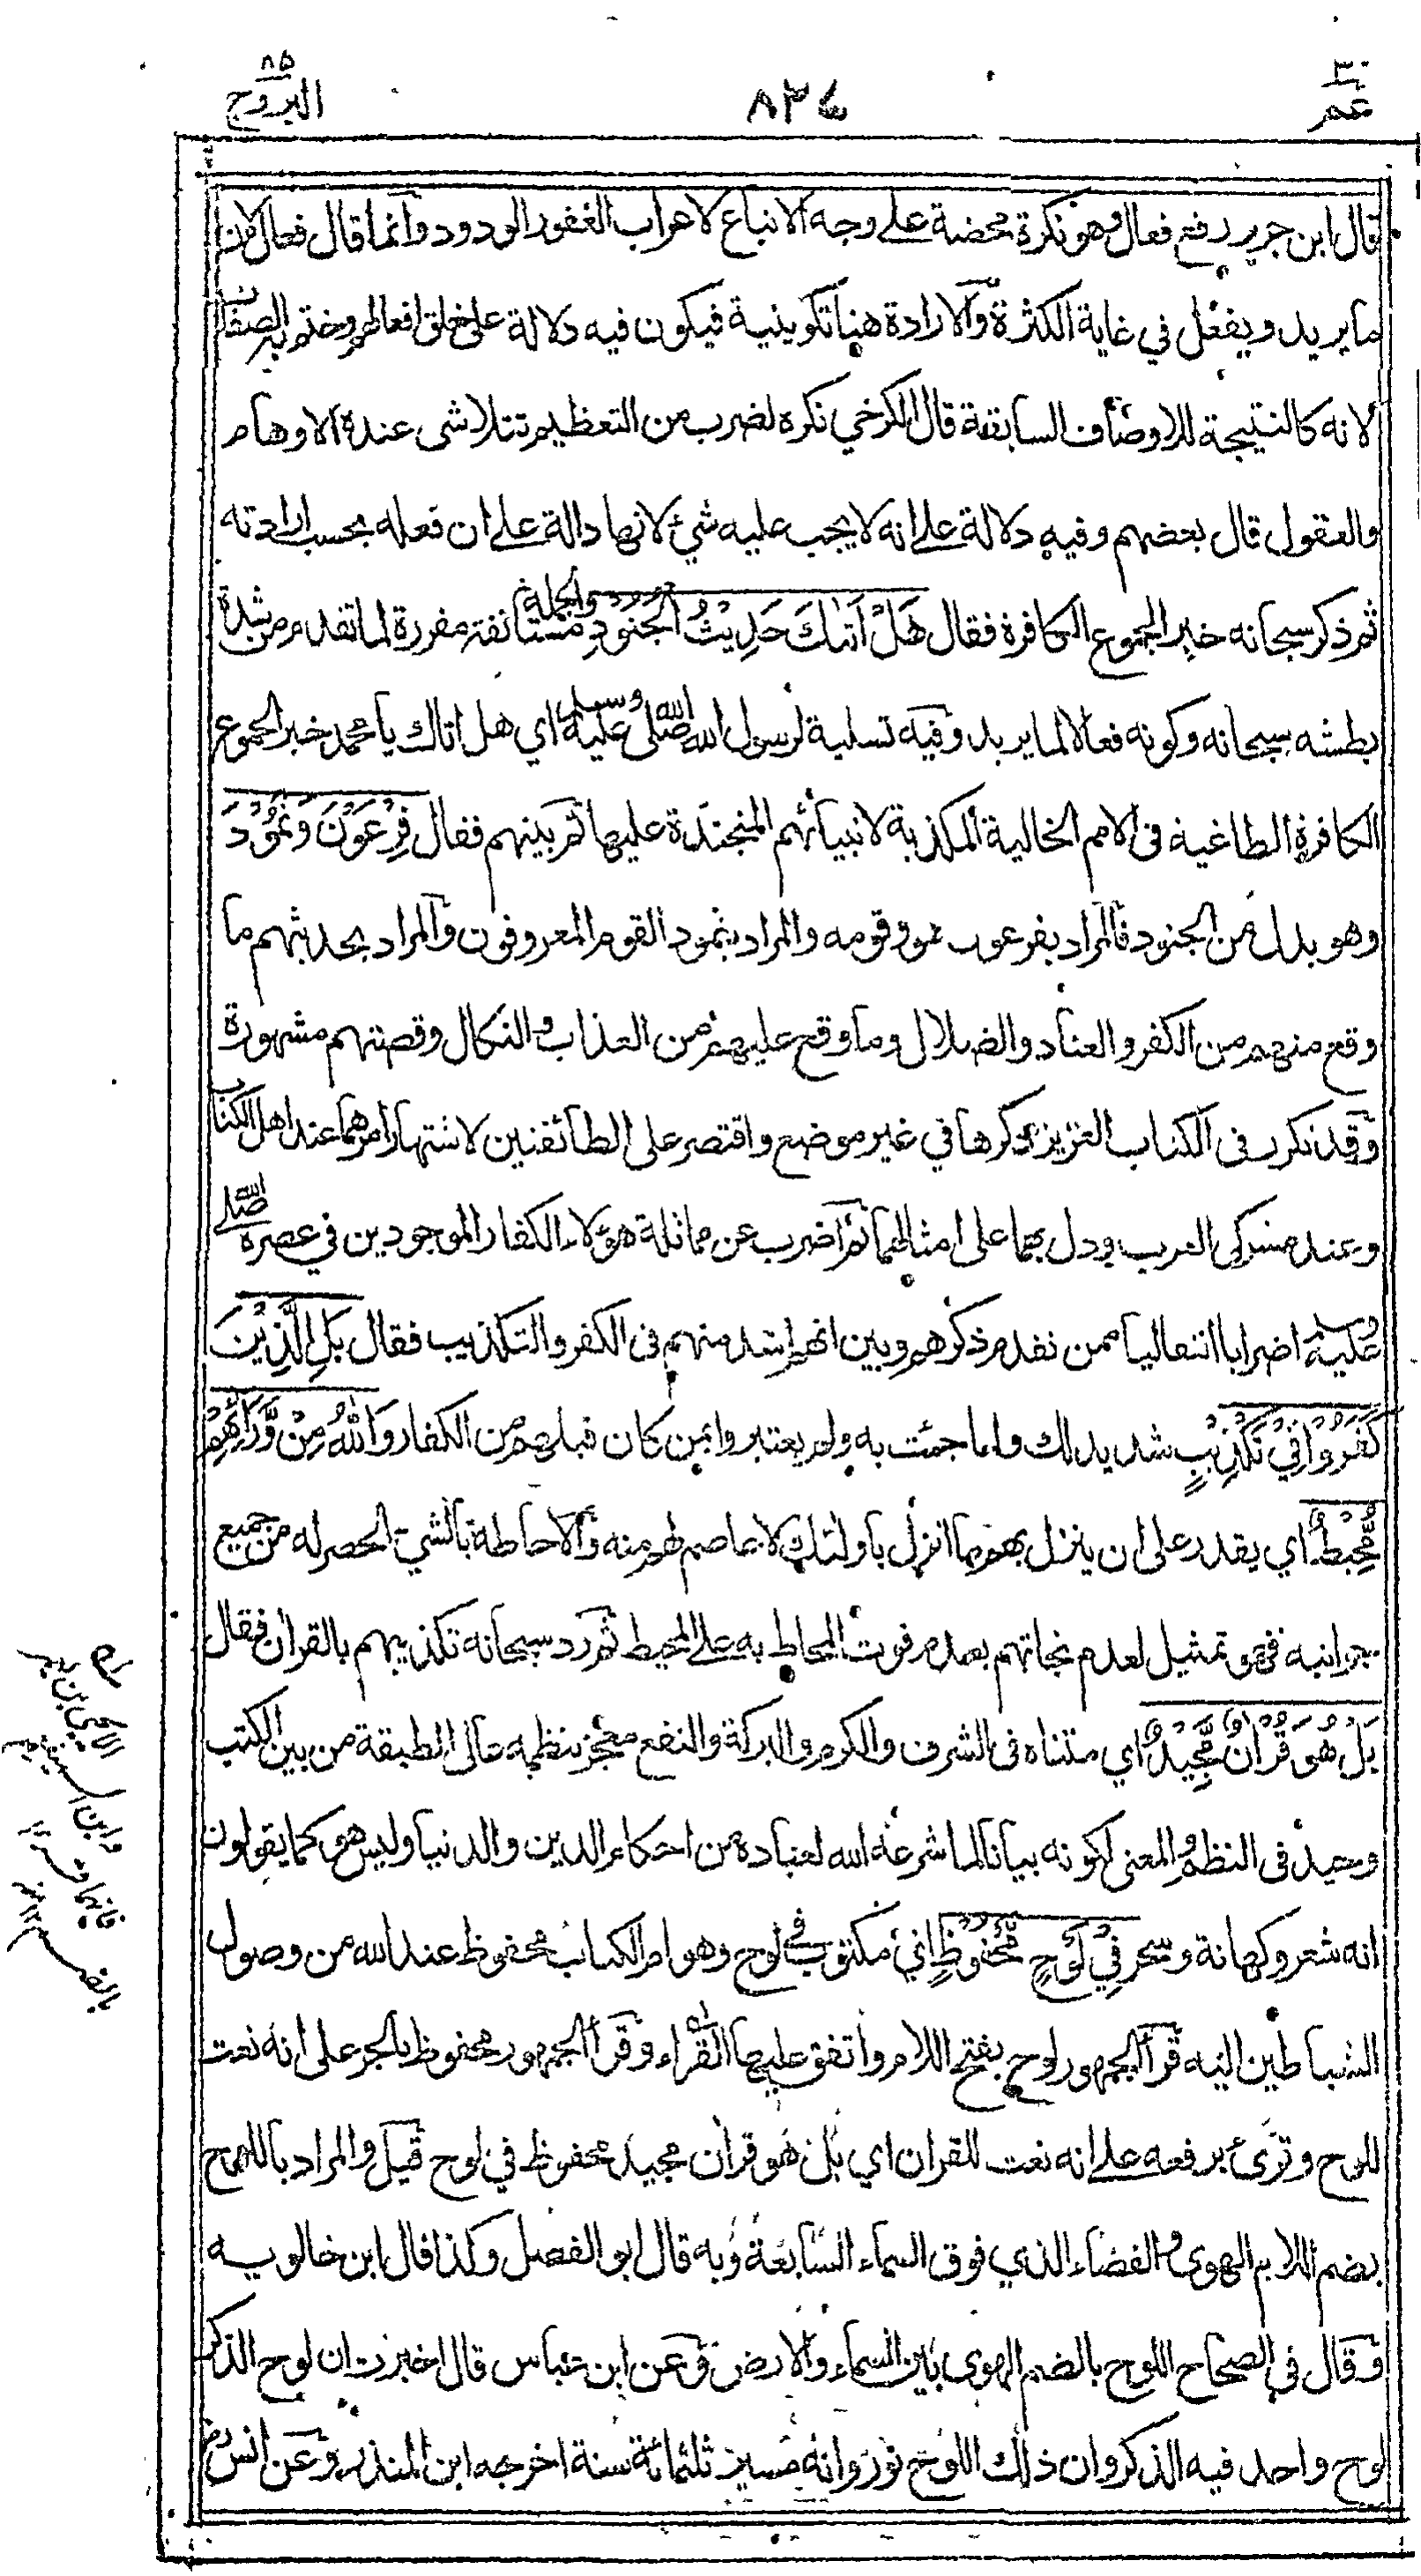 ٣٠
عم
٨٣٤
٨٥
البروج
قال ابن جرير رفع فعال وهو نكرة محضة على وجه الاتباع لاعراب الغفور الودود وانما قال فعال لان
ما يريد ويفعل في غاية الكثرة والارادة هنا تكوينية فيكون فيه دلالة على خلق افعالهم وختم به الصفات
لانه كالنتيجة للاوصاف السابقة قال الكرخي نكره لضرب من التعظيم تتلاشى عنده الاوهام
والعقول قال بعضهم وفيه دلالة على انه لا يجب عليه شيء لانها دالة على ان فعله بحسب ارادته
ثم ذكر سبحانه خبر الجموع الكافرة فقال هَلْ اَتٰىكَ حَدِيْثُ الْجُنُوْدِ والجملة مستانفة مقررة لما تقدم من شدة
بطشه سبحانه وكونه فعالا لما يريد وفيه تسلية لرسول الله صلى الله عليه وسلم اي هل اتاك يا محمد خبر الجموع
الكافرة الطاغية فى الامم الخالية المكذبة لانبيائهم المتجندة عليها ثم بينهم فقال فِرْعَوْنَ وَثَمُوْدَ
وهو بدل من الجنود فالمراد بفرعون هو وقومه والمراد بثمود القوم المعروفون والمراد بحديثهم ما
وقع منهم من الكفر والعناد والضلال وما وقع عليهم من العذاب والنكال وقصتهم مشهورة
وقد تكرر فى الكتاب العزيز ذكرها في غير موضع واقتصر على الطائفتين لاشتهار امرهما عند اهل الكتاب
وعند مشركى العرب ودل بهما على امثالهما ثم اضرب عن مماثلة هؤلاء الكفار الموجودين في عصره صلى الله
عليه وسلم اضرابا انتقاليا ممن تقدم ذكرهم وبين انهم اشد منهم فى الكفر والتكذيب فقال بَلِ الَّذِيْنَ
كَفَرُوْا فِيْ تَكْذِيْبٍ شديد لك ولما جئت به ولم يعتبروا بمن كان قبلهم من الكفار وَاللّٰهُ مِنْ وَّرَآئِهِمْ
مُّحِيْطٌ اي يقدر على ان ينزل بهم ما انزل باولئك لا عاصم لهم منه والاحاطة بالشيء الحصر له من جميع
جوانبه فهو تمثيل لعدم نجاتهم بعدم فوت المحاط به على المحيط ثم رد سبحانه تكذيبهم بالقران فقال
بَلْ هُوَ قُرْاٰنٌ مَّجِيْدٌ اي متناه فى الشرف والكرم والبركة والنفع معجز بنظمه عالى الطبقة من بين الكتب
وحيد فى النظم والمعنى لكونه بيانا لما شرعه الله لعباده من احكام الدين والدنيا وليس هو كما يقولون
انه شعر وكهانة وسحر فِيْ لَوْحٍ مَّحْفُوْظٍ اي مكتوب في لوح وهو ام الكتاب محفوظ عند الله من وصول
الشياطين اليه قرأ الجمهور لوح بفتح اللام واتفق عليها القراء وقرأ الجمهور محفوظ بالجر على انه نعت
للوح وقرئ برفعه على انه نعت للقران اي بل هو قران مجيد محفوظ في لوح قيل والمراد باللوح
بضم اللام الهوى والفضاء الذي فوق السماء السابعة وبه قال ابو الفضل وكذا قال ابن خالويه
وقال في الصحاح اللوح بالضم الهوى بين السماء والارض وعن ابن عباس قال اخبرت ان لوح الذكر
لوح واحد فيه الذكر وان ذلك اللوح نور وانه مسير ثلثمائة سنة اخرجه ابن المنذر وعن انس رض
وابن السميفع
فانهما قرءا
بالضم